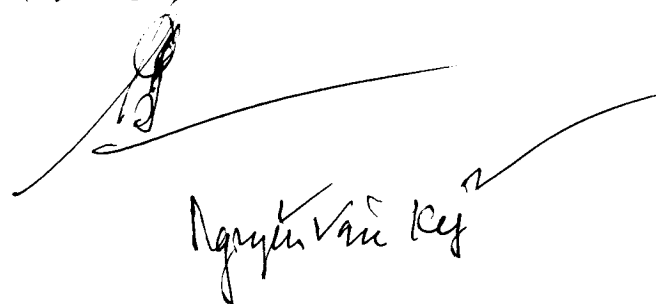 Nguyễn Văn Kỷ